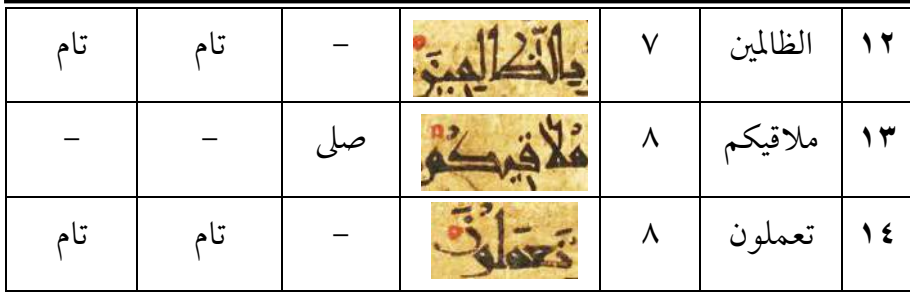 ١٢ الظالمين ٧ بِالظَّالِمِينَ – تام تام
١٣ ملاقيكم ٨ مُلَاقِيكُمْ صلى – –
١٤ تعملون ٨ تَعْمَلُونَ – تام تام